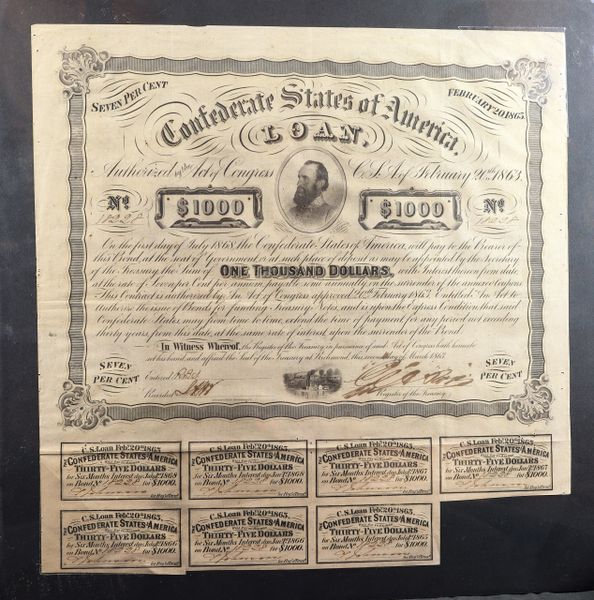 SEVEN PER CENT
FEBRUARY 20, 1863.
Confederate States of America.
LOAN,
Authorized by the Act of Congress C.S.A. of February 20th 1863.
No
$1000
$1000
No
On the first day of July 1868, the Confederate States of America, will pay to the Bearer of
this Bond, at the seat of Government, or at such place of deposit as may be appointed by the Secretary
of the Treasury, the Sum of ONE THOUSAND DOLLARS, with Interest thereon from date
at the rate of Seven per Cent per annum, payable semi annually on the surrender of the annexed Coupons
This Contract is authorized by An Act of Congress approved 20th February 1863, Entitled An Act to
Authorize the issue of Bonds for funding Treasury Notes, and is upon the Express Condition that said
Confederate States may from time to time extend the time of payment for any period not exceeding
thirty years from this date, at the same rate of interest upon the surrender of the Bond.
In Witness Whereof, the Register of the Treasury, in pursuance of said Act of Congress hath hereunto
set his hand, and affixed the Seal of the Treasury at Richmond, this second day of March 1863
SEVEN
PER CENT
Entered
Recorded
Register of the Treasury.
SEVEN
PER CENT
C.S. Loan Feby. 20th 1863.
THE CONFEDERATE STATES OF AMERICA
Will Pay to Bearer
THIRTY-FIVE DOLLARS
for Six Months Interest due July 1st 1868
on Bond, No for $1000.
for Reg'r Treas'r.
C.S. Loan Feby. 20th 1863.
THE CONFEDERATE STATES OF AMERICA
Will Pay to Bearer
THIRTY-FIVE DOLLARS
for Six Months Interest due Jany 1st 1868
on Bond, No for $1000.
for Reg'r Treas'r.
C.S. Loan Feby. 20th 1863.
THE CONFEDERATE STATES OF AMERICA
Will Pay to Bearer
THIRTY-FIVE DOLLARS
for Six Months Interest due July 1st 1867
on Bond, No for $1000.
for Reg'r Treas'r.
C.S. Loan Feby. 20th 1863.
THE CONFEDERATE STATES OF AMERICA
Will Pay to Bearer
THIRTY-FIVE DOLLARS
for Six Months Interest due Jany 1st 1867
on Bond, No for $1000.
for Reg'r Treas'r.
C.S. Loan Feby. 20th 1863.
THE CONFEDERATE STATES OF AMERICA
Will Pay to Bearer
THIRTY-FIVE DOLLARS
for Six Months Interest due July 1st 1866
on Bond, No for $1000.
for Reg'r Treas'r.
C.S. Loan Feby. 20th 1863.
THE CONFEDERATE STATES OF AMERICA
Will Pay to Bearer
THIRTY-FIVE DOLLARS
for Six Months Interest due Jany 1st 1866
on Bond, No for $1000.
for Reg'r Treas'r.
C.S. Loan Feby. 20th 1863.
THE CONFEDERATE STATES OF AMERICA
Will Pay to Bearer
THIRTY-FIVE DOLLARS
for Six Months Interest due July 1st 1865
on Bond, No for $1000.
for Reg'r Treas'r.